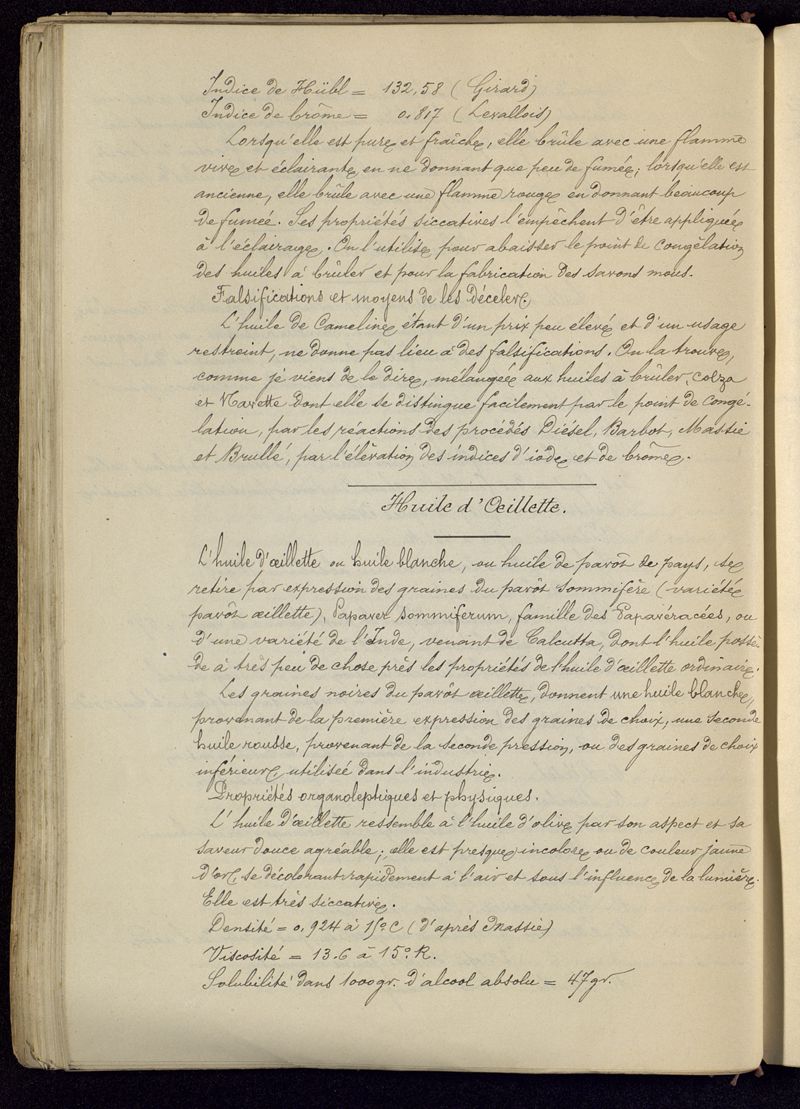 Indice de Hübl = 132,58 (Girard)
Indice de brôme = 0,817 (Levallois)
Lorsqu'elle est pure et fraîche, elle brûle avec une flamme
vive et éclairante en ne donnant que peu de fumée; lorsqu'elle est
ancienne, elle brûle avec une flamme rouge en donnant beaucoup
de fumée. Ses propriétés siccatives l'empêchent d'être appliquée
à l'éclairage. On l'utilise pour abaisser le point de congélation
des huiles à brûler et pour la fabrication des savons mous.
Falsifications et moyens de les déceler
L'huile de Cameline étant d'un prix peu élevé et d'un usage
restreint, ne donne pas lieu à des falsifications. On la trouve,
comme je viens de le dire, mélangée aux huiles à brûler, Colza
et Navette dont elle se distingue facilement par le point de congé-
lation, par les réactions des procédés Diésel, Barbot, Massie
et Brullé, par l'élévation des indices d'iode et de brôme.
Huile d'Œillette.
L'huile d'œillette ou huile blanche, ou huile de pavôt de pays, se
retire par expression des graines du pavôt somnifère (variété
pavôt œillette), Papaver somniferum, famille des Papavéracées, ou
d'une variété de l'Inde, venant de Calcutta, dont l'huile possè-
de à très peu de chose près les propriétés de l'huile d'œillette ordinaire.
Les graines noires du pavôt œillette, donnent une huile blanche,
provenant de la première expression des graines de choix, une seconde
huile rousse, provenant de la seconde pression, ou des graines de choix
inférieur utilisée dans l'industrie.
Propriétés organoleptiques et physiques.
L'huile d'œillette ressemble à l'huile d'olive par son aspect et sa
saveur douce agréable; elle est presque incolore ou de couleur jaune
d'or, se décolorant rapidement à l'air et sous l'influence de la lumière.
Elle est très siccative.
Densité = 0,924 à 15° C (d'après Massie)
Viscosité = 13.6 à 15° R.
Solubilité dans 1000 gr. d'alcool absolu = 47 gr.